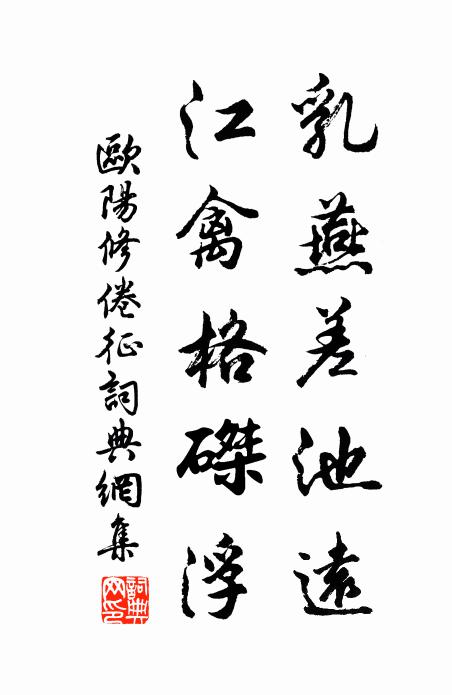 乳燕差池遠
江禽格磔浮
歐陽修倦征詞典網集
詞典網印